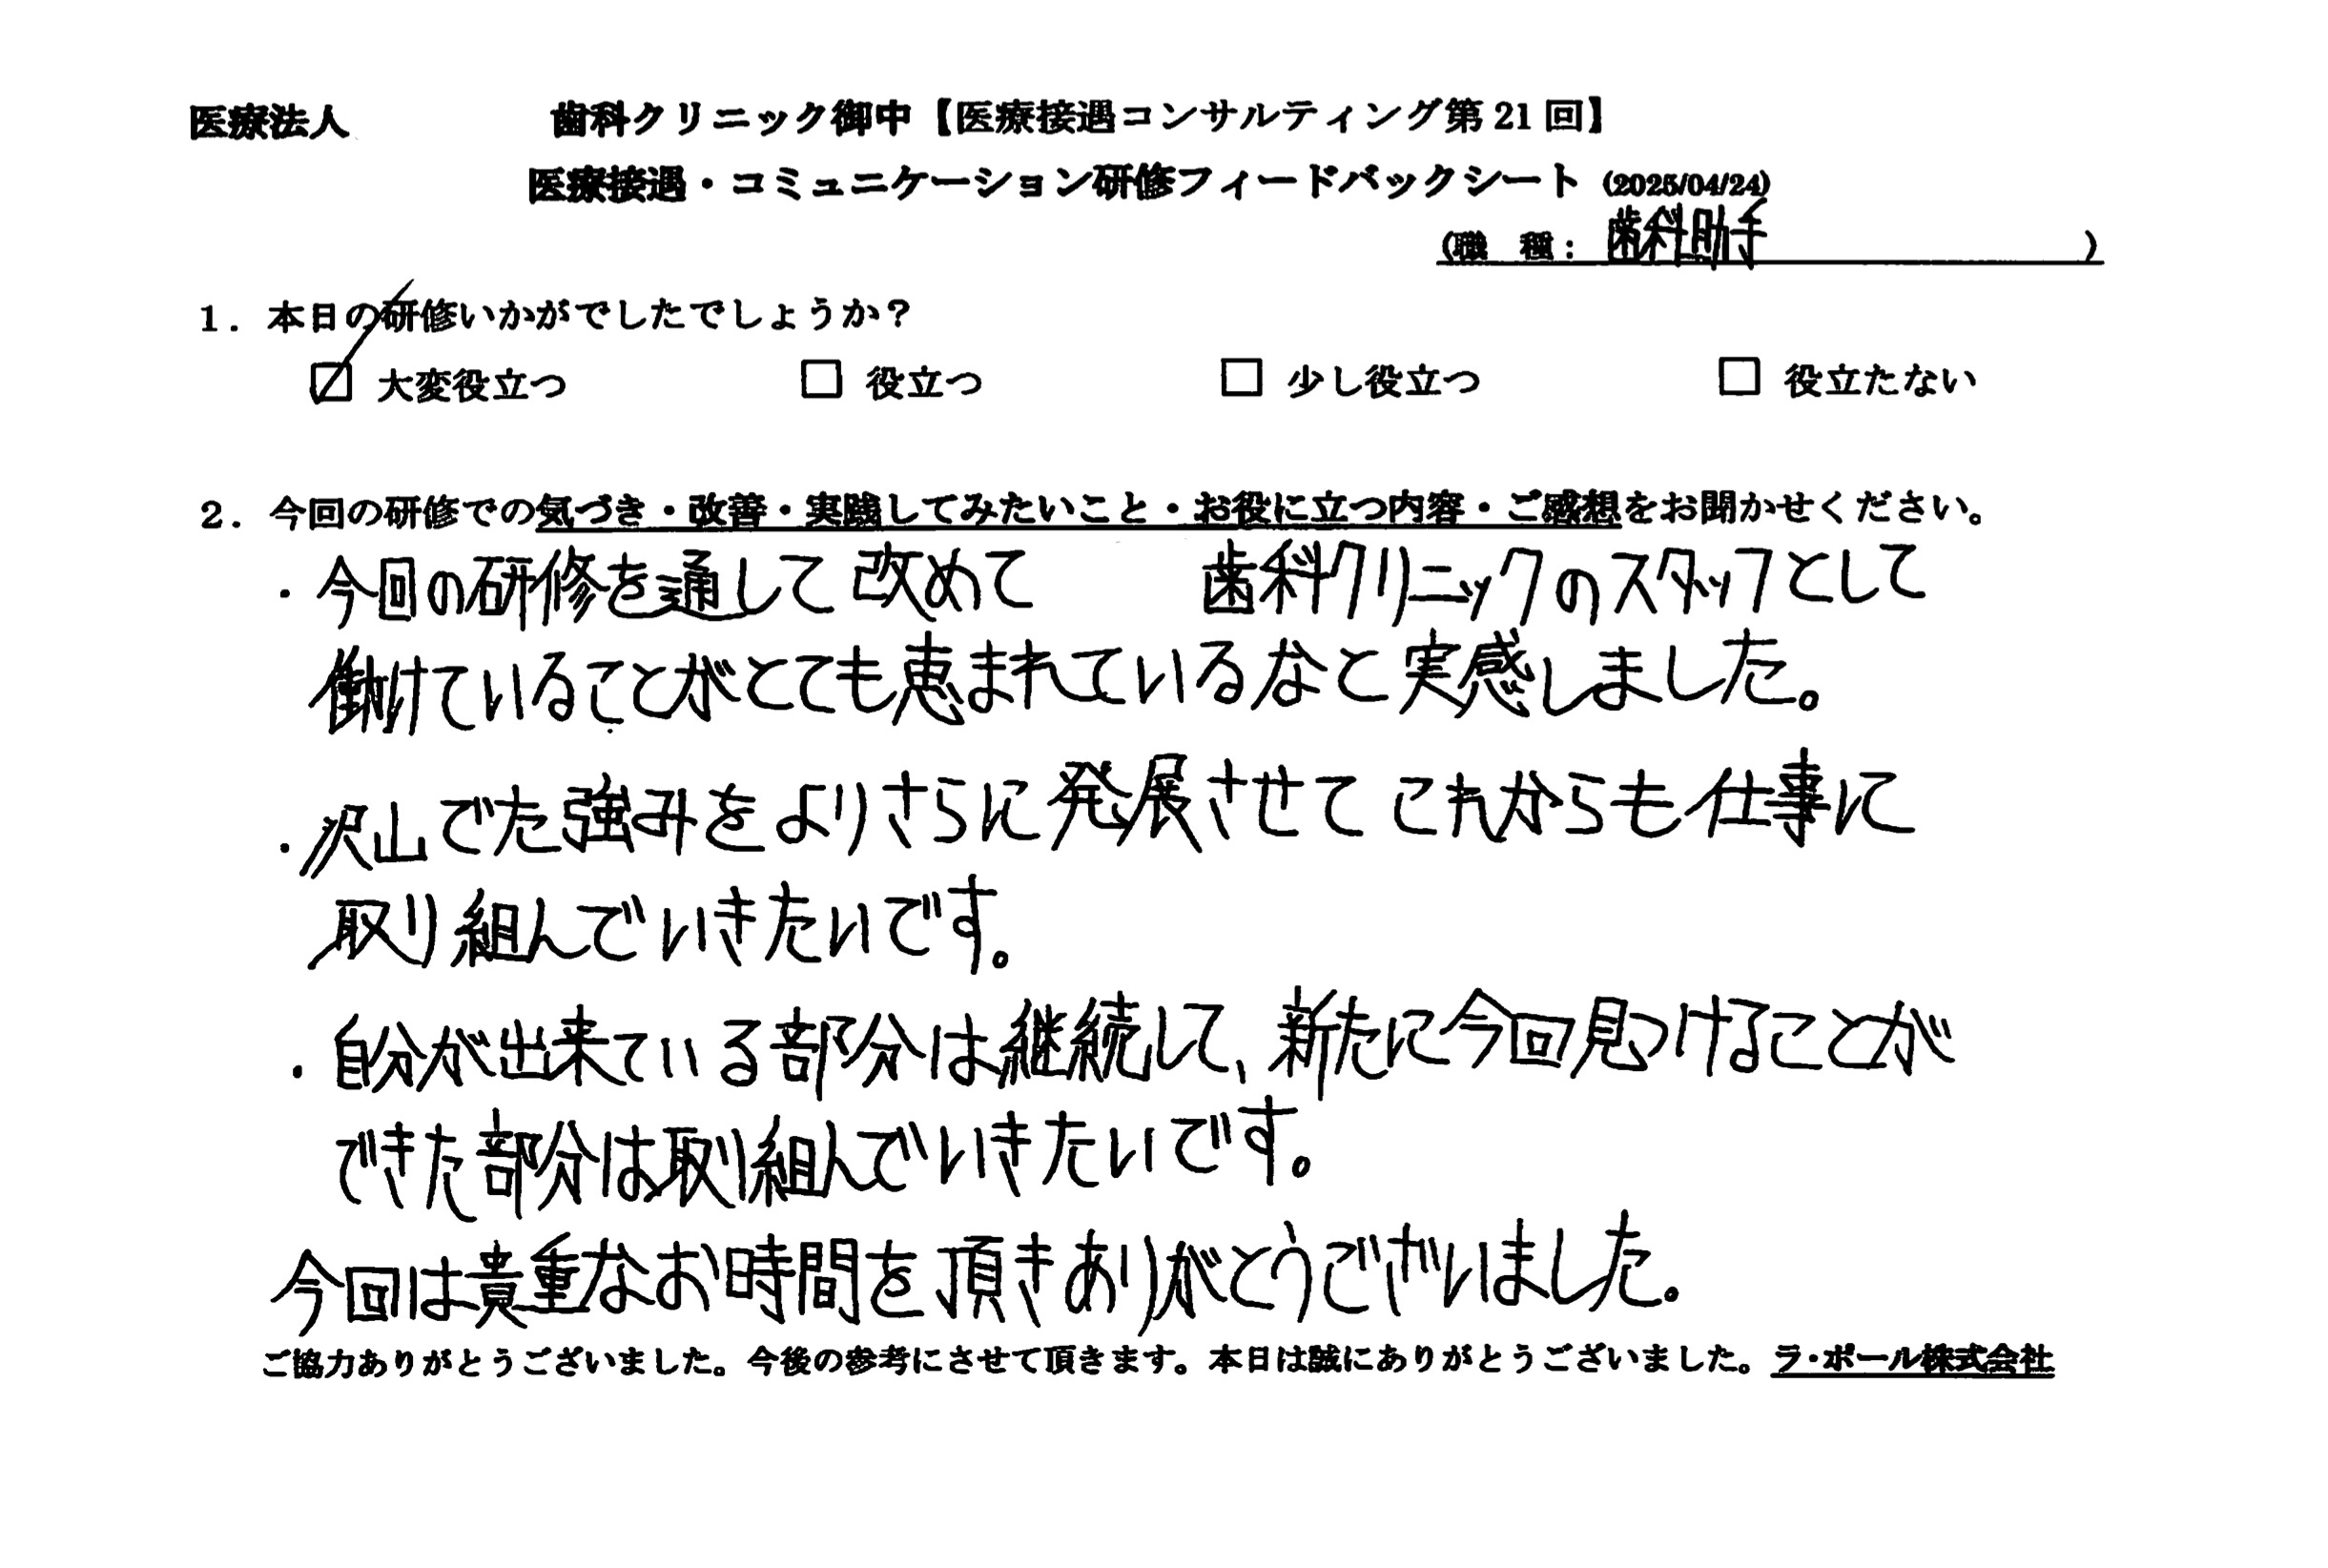 医療法人　　　歯科クリニック御中【医療接遇コンサルティング第21回】
医療接遇・コミュニケーション研修フィードバックシート（2025/04/24）
（職　種：歯科助手　　　）
1．本日の研修いかがでしたでしょうか？
☑ 大変役立つ　□ 役立つ　□ 少し役立つ　□ 役立たない
2．今回の研修での気づき・改善・実践してみたいこと・お役に立つ内容・ご感想をお聞かせください。
・今回の研修を通して改めて　　　歯科クリニックのスタッフとして
働けていることがとても恵まれているなと実感しました。
・沢山でた強みをよりさらに発展させてこれからも仕事に
取り組んでいきたいです。
・自分が出来ている部分は継続して、新たに今回見つけることが
できた部分は取り組んでいきたいです。
今回は貴重なお時間を頂きありがとうございました。
ご協力ありがとうございました。今後の参考にさせて頂きます。本日は誠にありがとうございました。ラ・ポール株式会社